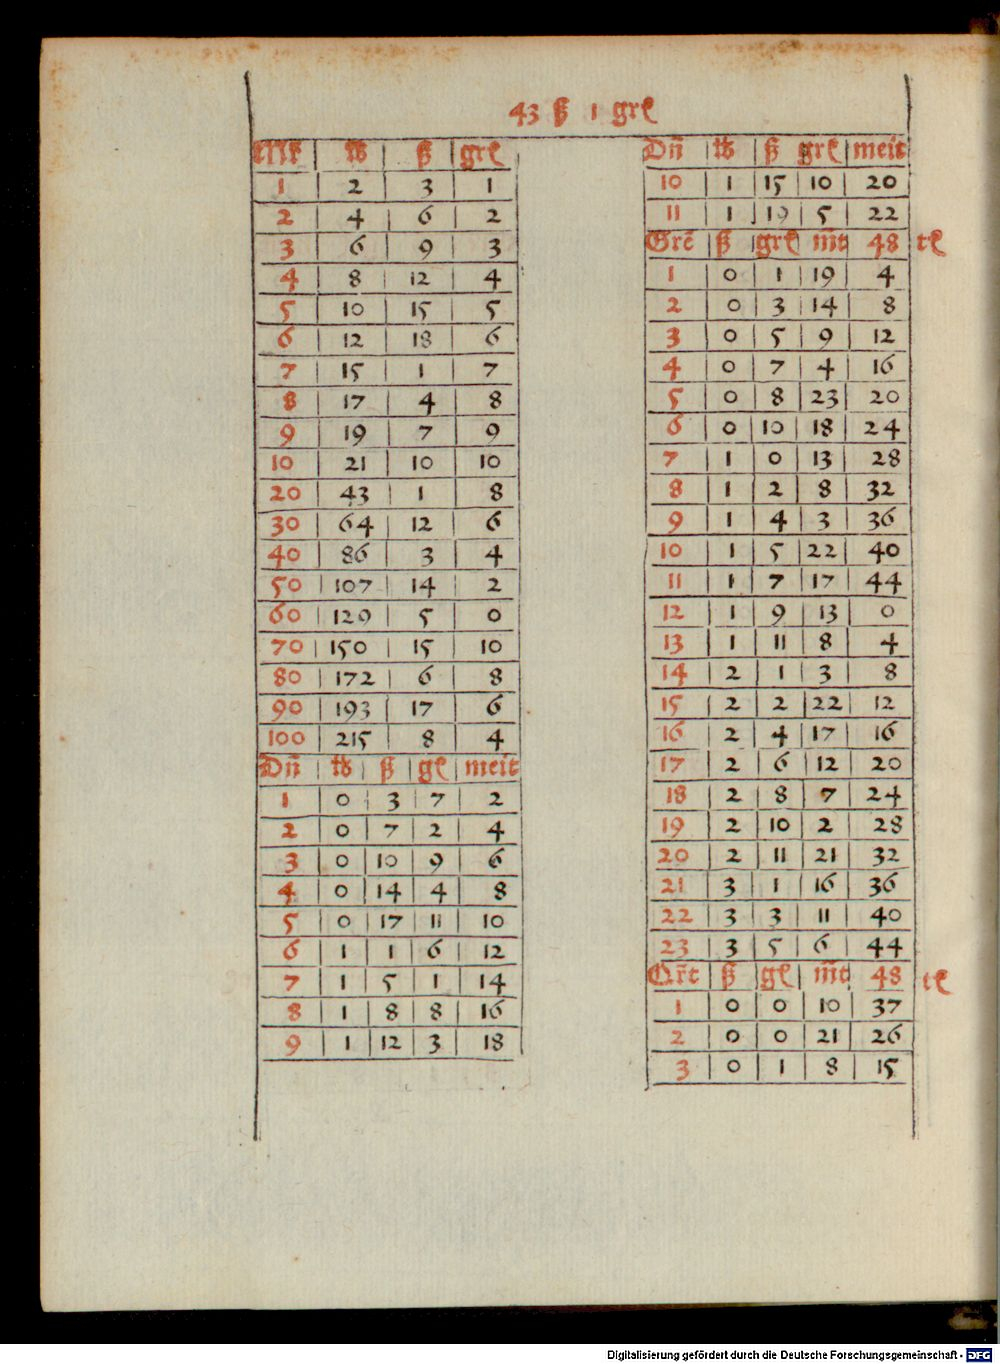 43 ß 1 grl
Mk lb ß grl
1 2 3 1
2 4 6 2
3 6 9 3
4 8 12 4
5 10 15 5
6 12 18 6
7 15 1 7
8 17 4 8
9 19 7 9
10 21 10 10
20 43 1 8
30 64 12 6
40 86 3 4
50 107 14 2
60 129 5 0
70 150 15 10
80 172 6 8
90 193 17 6
100 215 8 4
Dn̄ lb ß gl meit
1 0 3 7 2
2 0 7 2 4
3 0 10 9 6
4 0 14 4 8
5 0 17 11 10
6 1 1 6 12
7 1 5 1 14
8 1 8 8 16
9 1 12 3 18
Dn̄ lb ß grl meit
10 1 15 10 20
11 1 19 5 22
Grē ß grl m̄t 48 tl
1 0 1 19 4
2 0 3 14 8
3 0 5 9 12
4 0 7 4 16
5 0 8 23 20
6 0 10 18 24
7 1 0 13 28
8 1 2 8 32
9 1 4 3 36
10 1 5 22 40
11 1 7 17 44
12 1 9 13 0
13 1 11 8 4
14 2 1 3 8
15 2 2 22 12
16 2 4 17 16
17 2 6 12 20
18 2 8 7 24
19 2 10 2 28
20 2 11 21 32
21 3 1 16 36
22 3 3 11 40
23 3 5 6 44
Qr̄t ß gl m̄t 48 tl
1 0 0 10 37
2 0 0 21 26
3 0 1 8 15
Digitalisierung gefördert durch die Deutsche Forschungsgemeinschaft - DFG